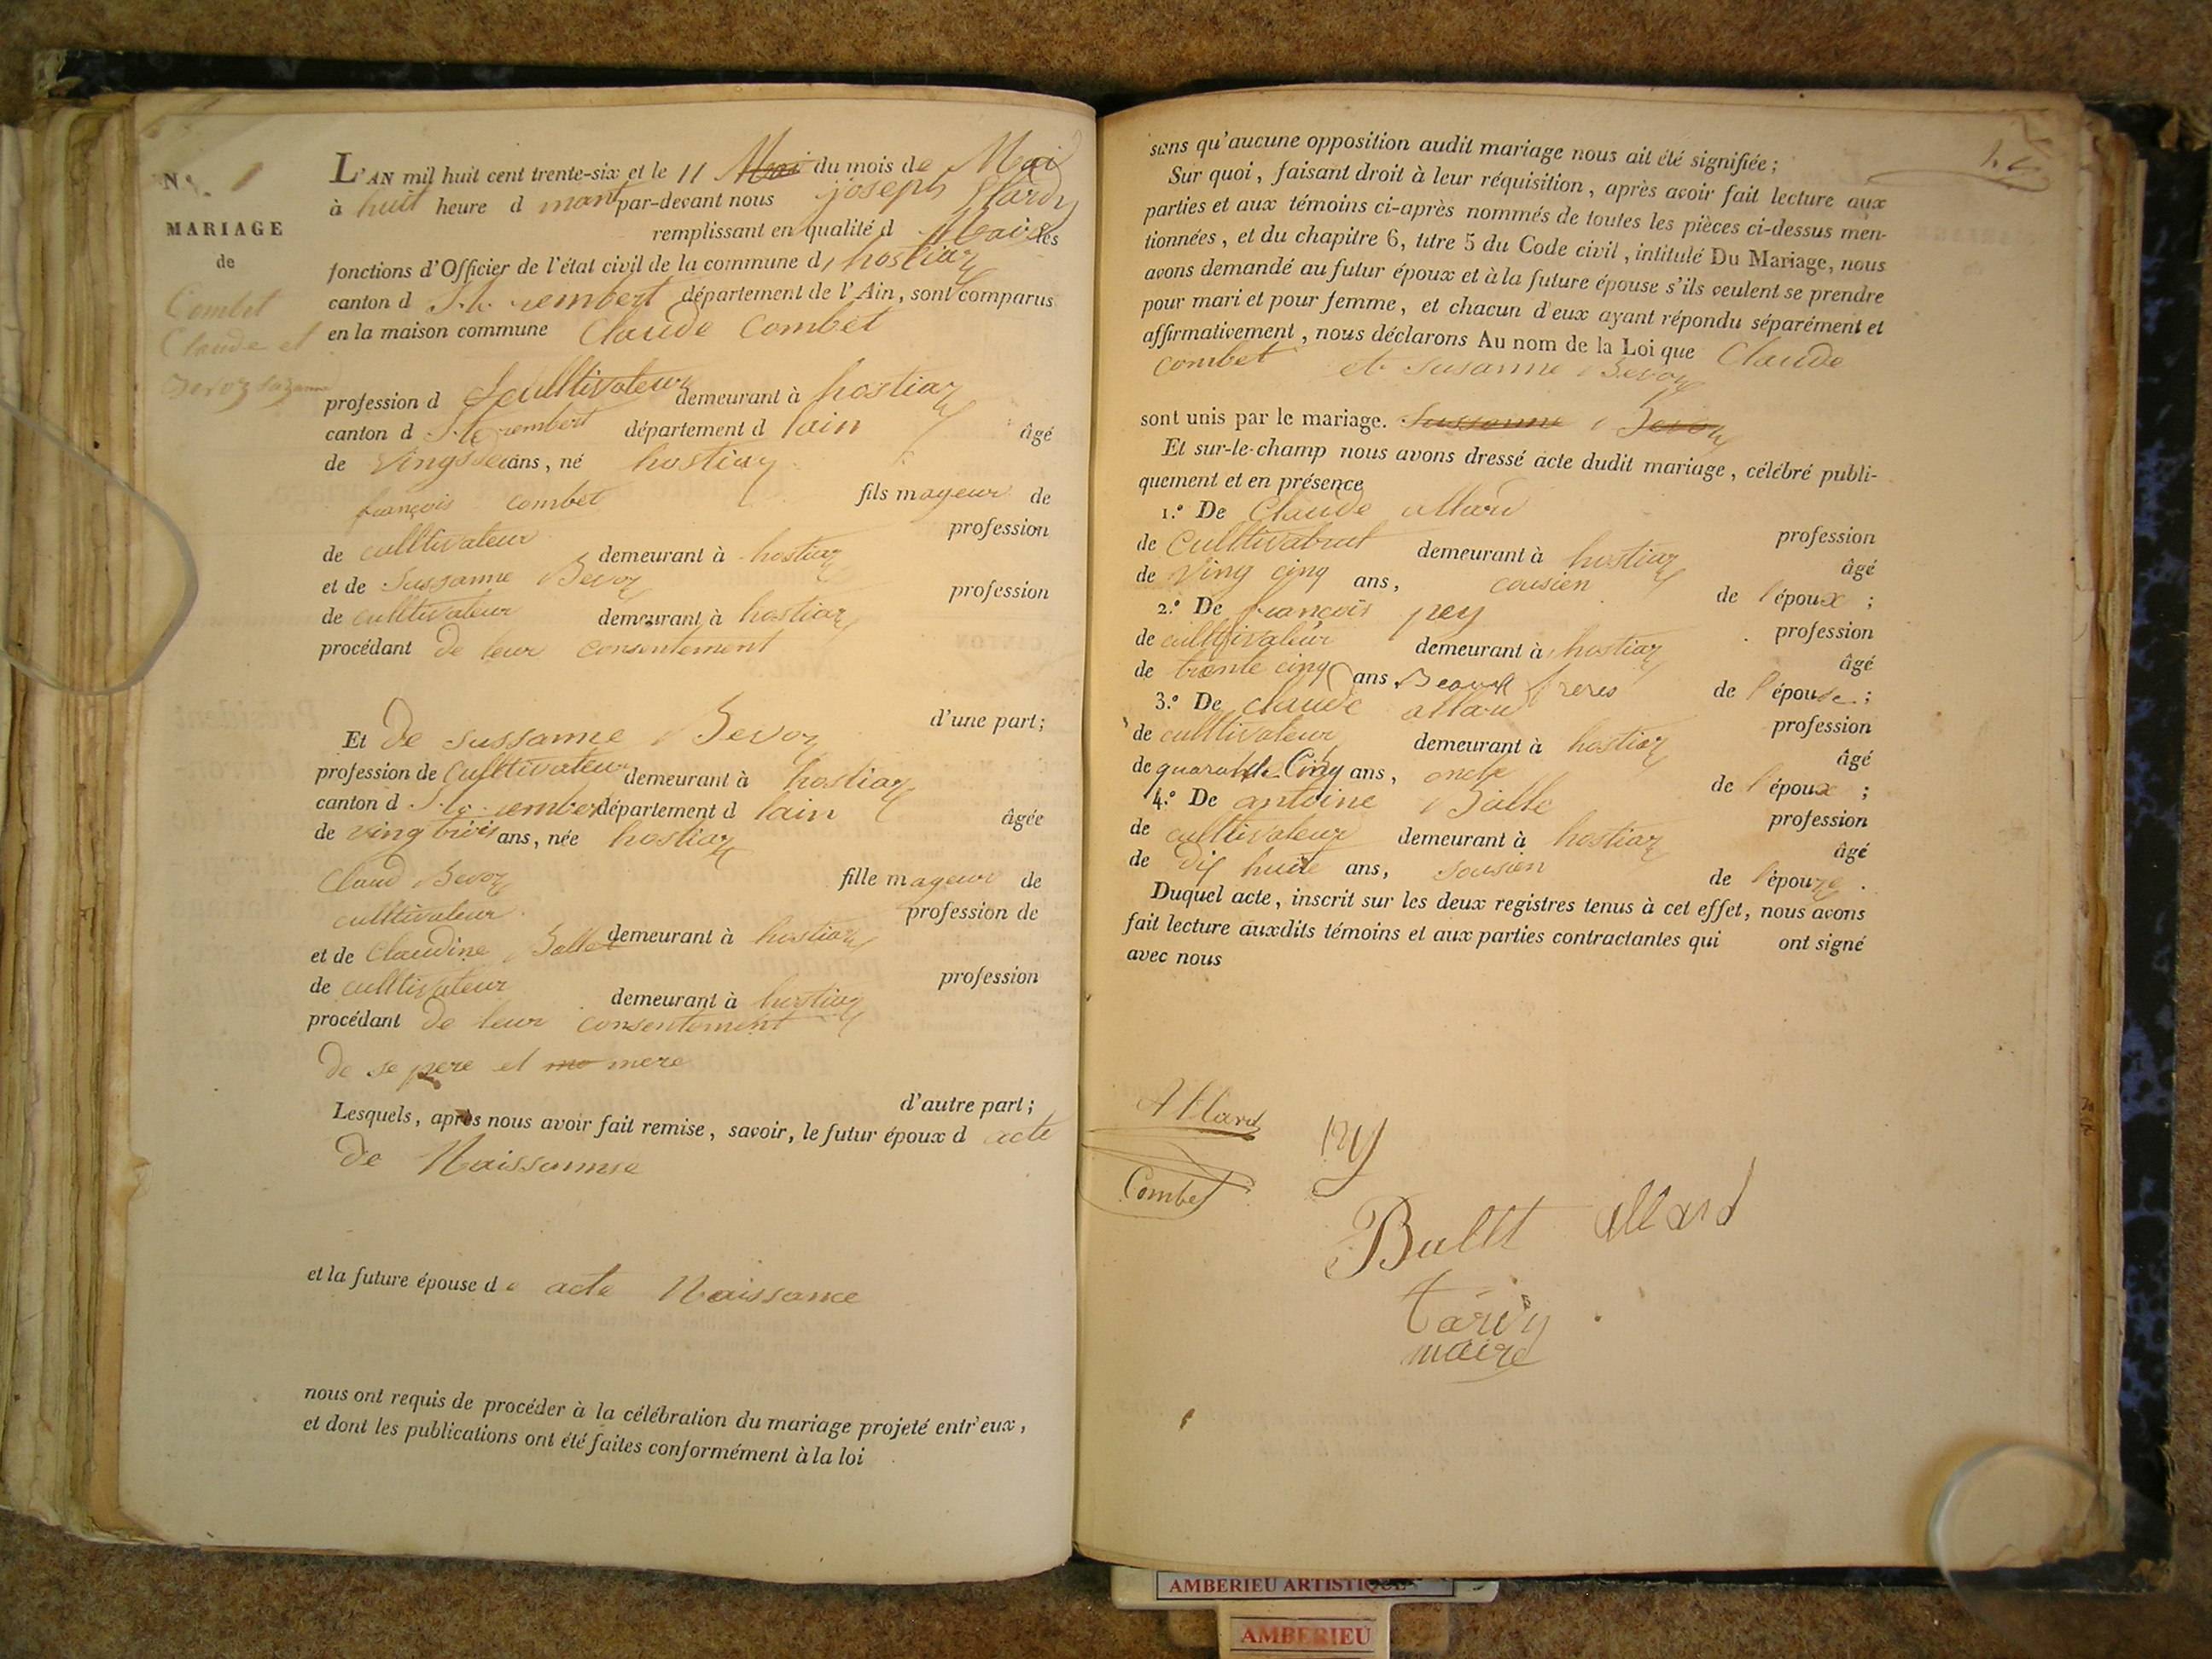 N.º 1
MARIAGE
de
Combet
Claude et
Bevoz Suzanne
L'AN mil huit cent trente-six et le 11 Mai du mois de Mai
à huit heure d par-devant nous joseph
remplissant en qualité d Maire les
fonctions d'Officier de l'état civil de la commune d hostiaz
canton d St rembert département de l'Ain, sont comparus
en la maison commune Claude Combet
profession d cultivateur demeurant à hostiaz
canton d St rembert département d lain âgé
de ans, né hostiaz
françois combet fils mageur de
profession
de culltivateur demeurant à hostiaz
et de Sussanne Bevoz profession
de culltivateur demeurant à hostiaz
procédant de leur consentement
d'une part;
Et de sussanne Bevoz
profession de Culltivateur demeurant à hostiaz
canton d St rembert département d lain âgée
de ving trois ans, née hostiaz
Claud Bevoz fille mageur de
cultivateur profession de
et de Claudine Ballet demeurant à hostiaz
profession
de culltivateur demeurant à hostiaz
procédant de leur consentement
de se pere et mo mere
d'autre part;
Lesquels, après nous avoir fait remise, savoir, le futur époux d acte
de Naissannse
et la future épouse de acte Naissance
nous ont requis de procéder à la célébration du mariage projeté entr'eux,
et dont les publications ont été faites conformément à la loi
sans qu'aucune opposition audit mariage nous ait été signifiée;
Sur quoi, faisant droit à leur réquisition, après avoir fait lecture aux
parties et aux témoins ci-après nommés de toutes les pièces ci-dessus men-
tionnées, et du chapitre 6, titre 5 du Code civil, intitulé Du Mariage, nous
avons demandé au futur époux et à la future épouse s'ils veulent se prendre
pour mari et pour femme, et chacun d'eux ayant répondu séparément et
affirmativement, nous déclarons Au nom de la Loi que Claude
combet et susanne Bevoz
sont unis par le mariage. Sussanne Bevoz
Et sur-le-champ nous avons dressé acte dudit mariage, célébré publi-
quement et en présence
1.º De Claude allard
profession
de demeurant à hostiaz
âgé
de Ving cinq ans, cousien de l'époux;
2.º De françois pey
profession
de culltivateur demeurant à hostiaz
âgé
de trante cinq ans Beaux freres de l'épouse;
3.º De claude allard
profession
de culltivateur demeurant à hostiaz
âgé
de quarante Cinq ans, oncle de l'époux;
4.º De antoine Balle
profession
de culltivateur demeurant à hostiaz
âgé
de dix huite ans, cousien de l'épouze.
Duquel acte, inscrit sur les deux registres tenus à cet effet, nous avons
fait lecture auxdits témoins et aux parties contractantes qui ont signé
avec nous
Allard
Combet
Ballt allard
tardy
maire
AMBERIEU ARTISTIQUE
AMBERIEU